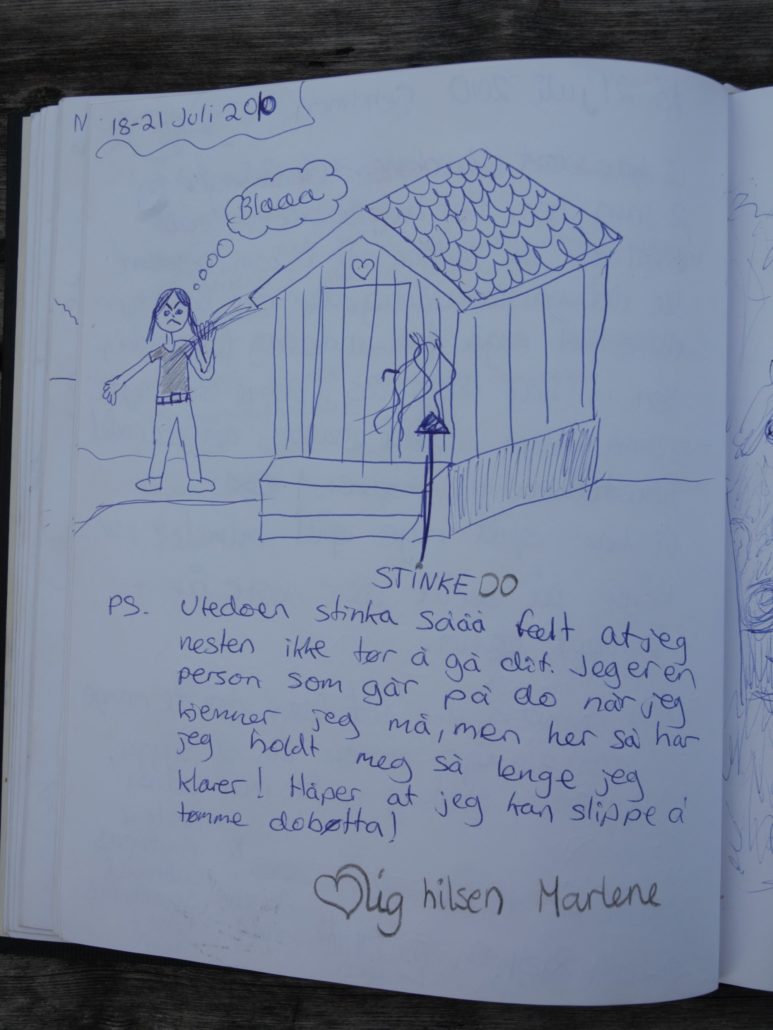 N. 18-21 Juli 2010
Blaaa
STINKEDO
PS. Utedoen stinka sååå fælt at jeg
nesten ikke tør å gå dit. Jeg er en
person som går på do når jeg
kjenner jeg må, men her så har
jeg holdt meg så lenge jeg
klarer! Håper at jeg kan slippe å
tømme dobøtta!
♡lig hilsen Marlene